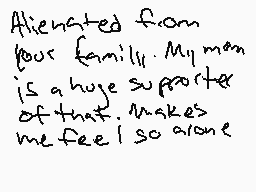 Alienated from
your family. My mom
is a huge supporter
of that. Makes
me feel so alone